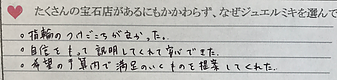 たくさんの宝石店があるにもかかわらず、なぜジュエルミキを選んで
。指輪のつけごこちが良かった。
。自信をもって説明してくれて安心できた。
。希望の予算内で満足のいくものを提案してくれた。